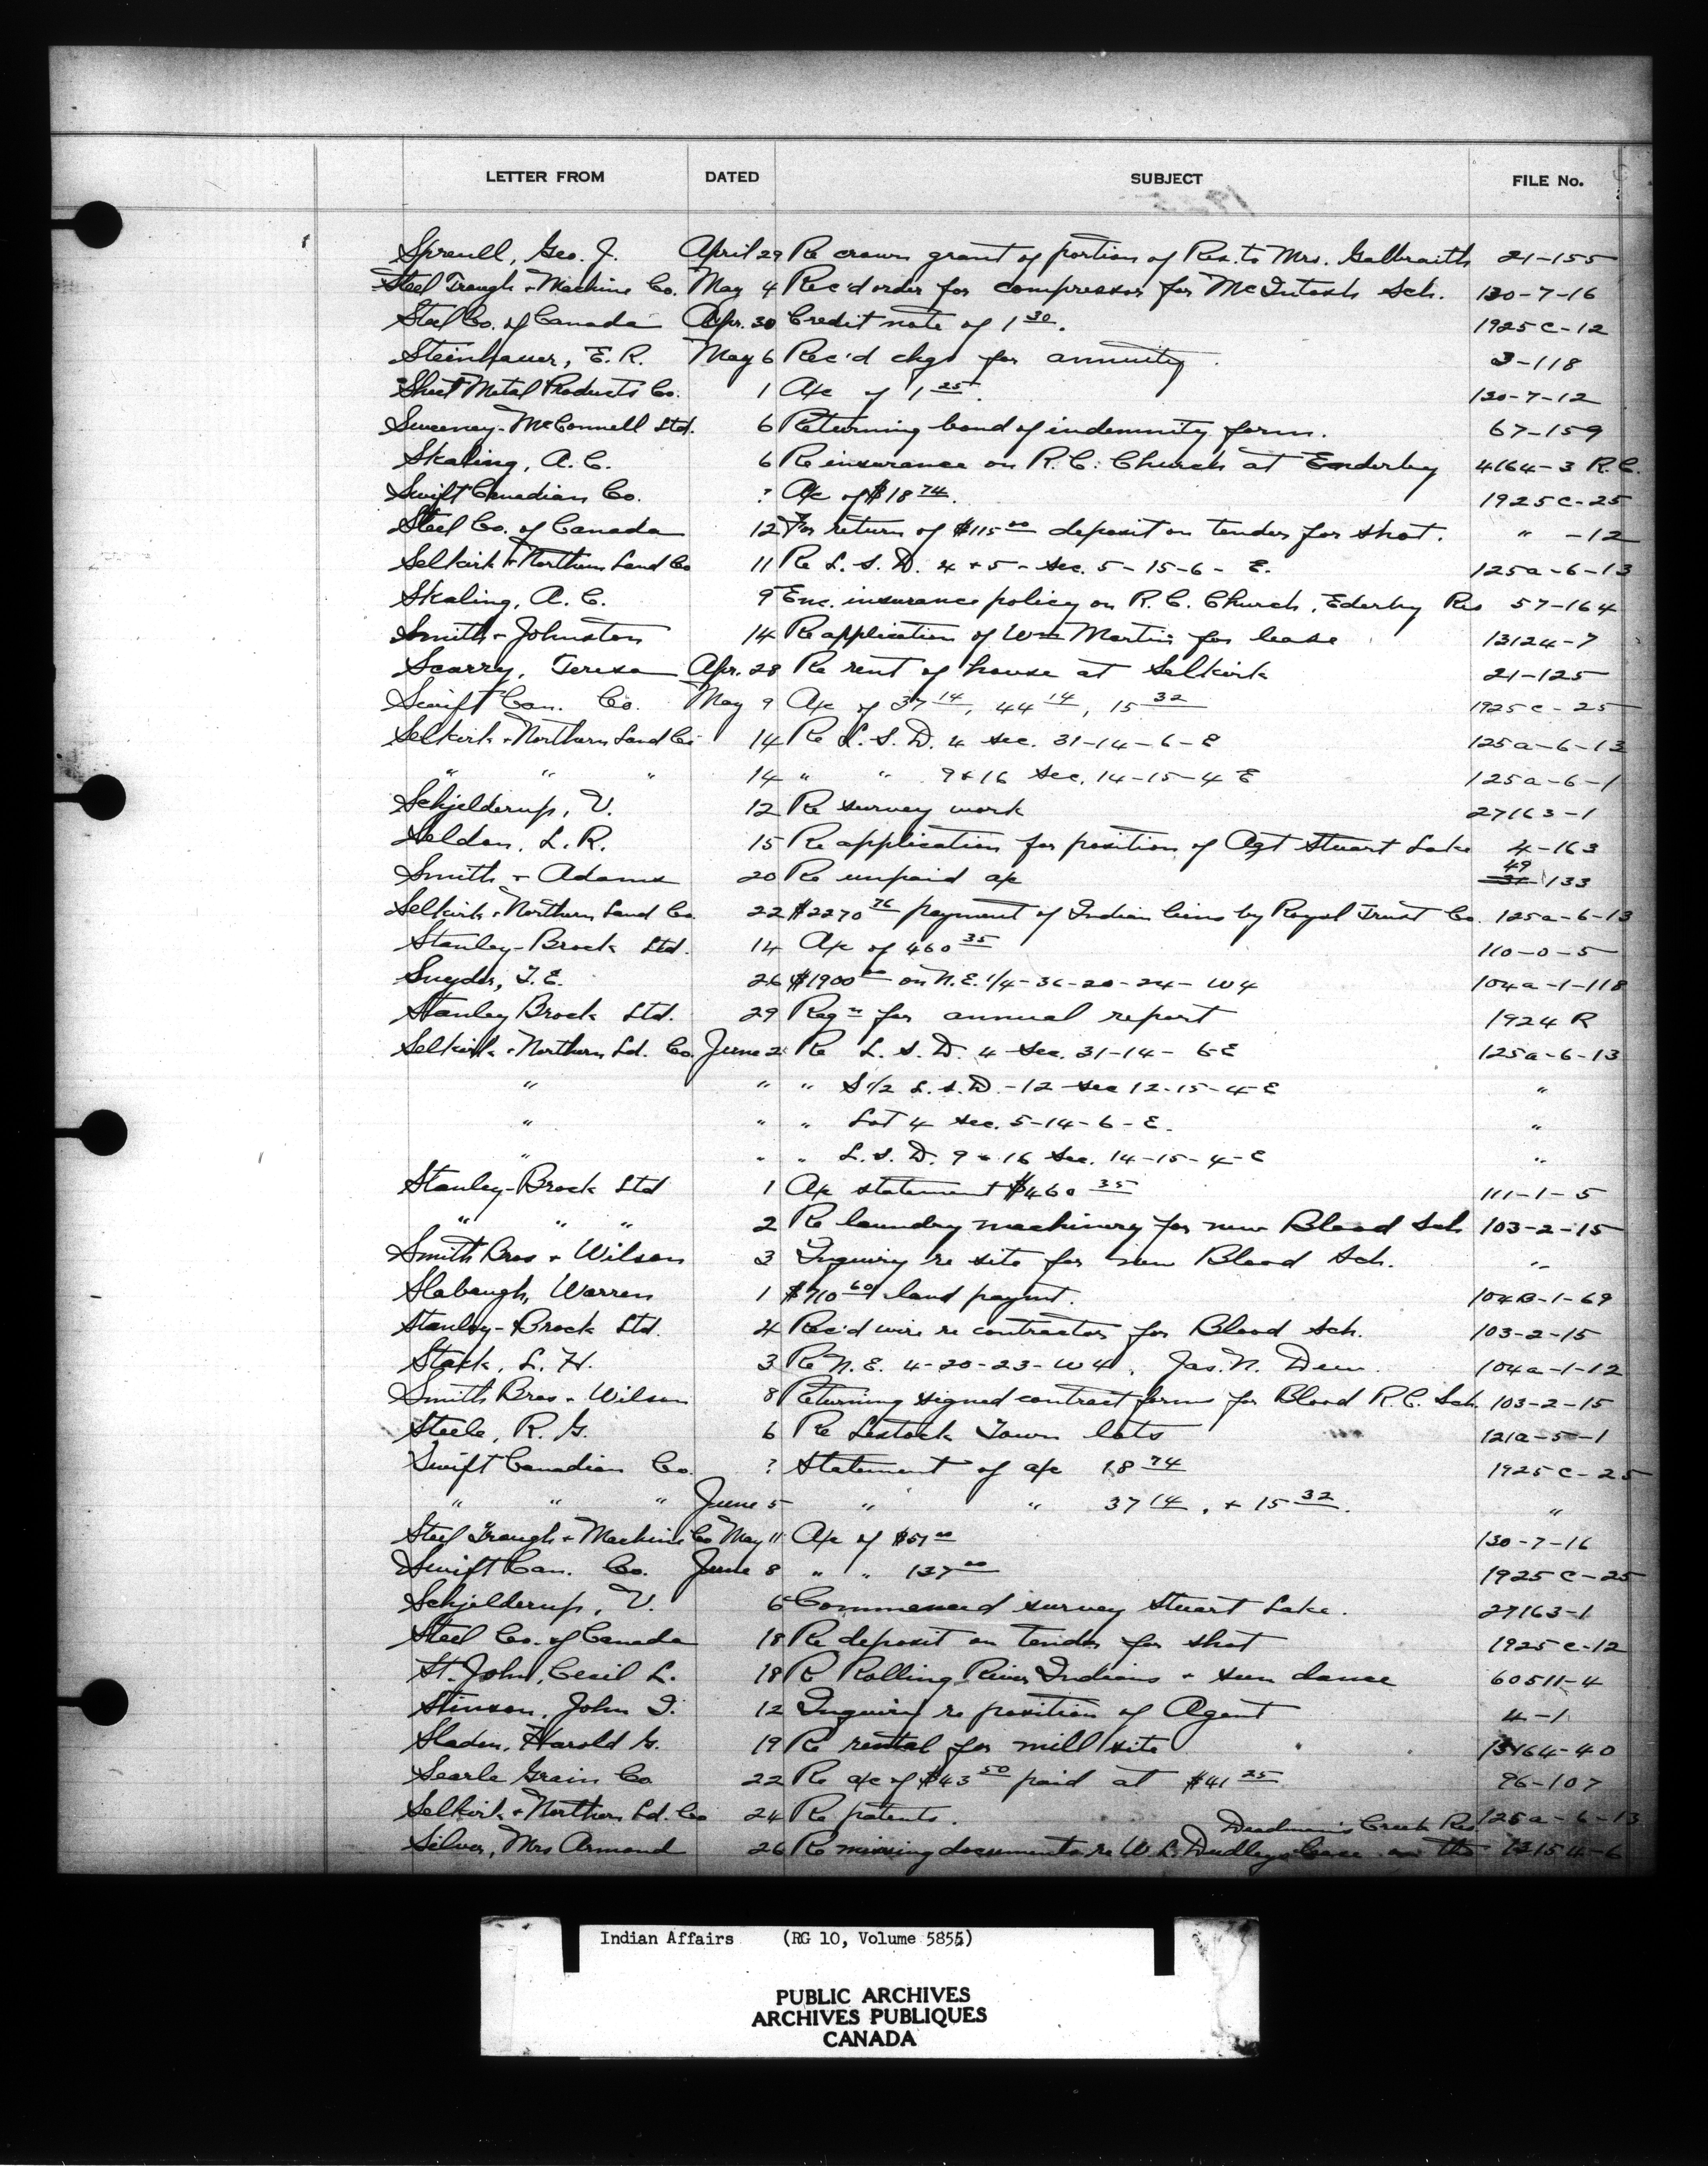 LETTER FROM DATED SUBJECT FILE No.
Sproull, Geo. J. April 29 Re crown grant of portion of Res. to Mrs. Galbraith 21-155
Steel Trough + Machine Co. May 4 Rec'd order for compressor for McIntosh Sch. 130-7-16
Steel Co. of Canada Apr. 30 Credit note of 1 30. 1925 C-12
Steinhauer, E. R. May 6 Rec'd chqs for annuity. 3-118
Sheet Metal Products Co. 1 A/c of 1 25. 130-7-12
Sweeney-McConnell Ltd. 6 Returning bond of indemnity form. 67-159
Skaling, A. C. 6 Re insurance on R. C. Church at Enderby 4164-3 R.C.
Swift Canadian Co. ? A/c of $18 74. 1925 C-25
Steel Co. of Canada 12 For return of $115 00 deposit on tender for shot. " -12
Selkirk + Northern Land Co 11 Re L. S. D. 4 + 5 - Sec. 5-15-6- E. 125a-6-13
Skaling, A. C. 9 Enc. insurance policy on R. C. Church, Ederby Res 57-164
Smith + Johnston 14 Re application of Wm Martin for lease 13124-7
Scarry, Teresa Apr. 28 Re rent of house at Selkirk 21-125
Swift Can. Co. May 9 A/c of 37 14, 44 14, 15 32 1925 C-25
Selkirk + Northern Land Co 14 Re L. S. D. 4 sec. 31-14-6-E 125a-6-13
" " " 14 " " 9 + 16 Sec. 14-15-4 E 125a-6-1
Schjelderup, V. 12 Re survey work 27163-1
Seldon, L. R. 15 Re application for position of Agt Stuart Lake 4-163
Smith + Adams 20 Re unpaid a/c 49 133
Selkirk + Northern Land Co. 22 $2270 76 payment of Indian liens by Royal Trust Co. 125a-6-13
Stanley-Brock Ltd. 14 A/c of 460 35 110-0-5
Snyder, T. E. 26 $1900 00 on N.E. 1/4-36-20-24- W4 104a-1-118
Stanley Brock Ltd. 29 Reqn for annual report 1924 R
Selkirk + Northern Ld. Co. June 2 Re L. S. D. 4 Sec. 31-14- 6-E 125a-6-13
" " " S 1/2 L. S. D. -12 Sec 12-15-4-E "
" " " Lot 4 Sec. 5-14-6-E. "
" " " L. S. D. 9 + 16 Sec. 14-15-4-E "
Stanley-Brock Ltd 1 A/c statement $460 35 111-1-5
" " " 2 Re laundry machinery for new Blood Sch 103-2-15
Smith Bros + Wilson 3 Inquiry re site for new Blood Sch. "
Slabaugh, Warren 1 $710 60 land paymt. 104B-1-69
Stanley-Brock Ltd. 4 Rec'd wire re contractor for Blood Sch. 103-2-15
Stack, L. H. 3 Re N. E. 4-20-23-W4, Jas. N. 104a-1-12
Smith Bros + Wilson 8 Returning signed contract forms for Blood R. C. Sch. 103-2-15
Steele, R. G. 6 Re Lestock Town lots 121a-5-1
Swift Canadian Co. ? Statement of a/c 18 74 1925 C-25
" " " June 5 " " 37 14, + 15 32. "
Steel Trough + Machine Co May 11 A/c of $51 00 130-7-16
Swift Can. Co. June 8 " " 137 00 1925 C-25
Schjelderup, V. 6 Commenced survey Stuart Lake. 27163-1
Steel Co. of Canada 18 Re deposit on tender for shot 1925 C-12
St. John, Cecil L. 18 Re Rolling River Indians + sun dance 60511-4
Stinson, John I. 12 Inquiry re position of Agent 4-1
Sladen, Harold G. 19 Re rental for mill site 13164-40
Searle Grain Co 22 Re a/c of $43 50 paid at $41 25 96-107
Selkirk + Northern Ld. Co 24 Re patents. 125a-6-13
Deadman's Creek Res.
Silver, Mrs Armond 26 Re missing documents re W. L. Dudley lease on the 12154-6
Indian Affairs (RG 10, Volume 5855)
PUBLIC ARCHIVES
ARCHIVES PUBLIQUES
CANADA